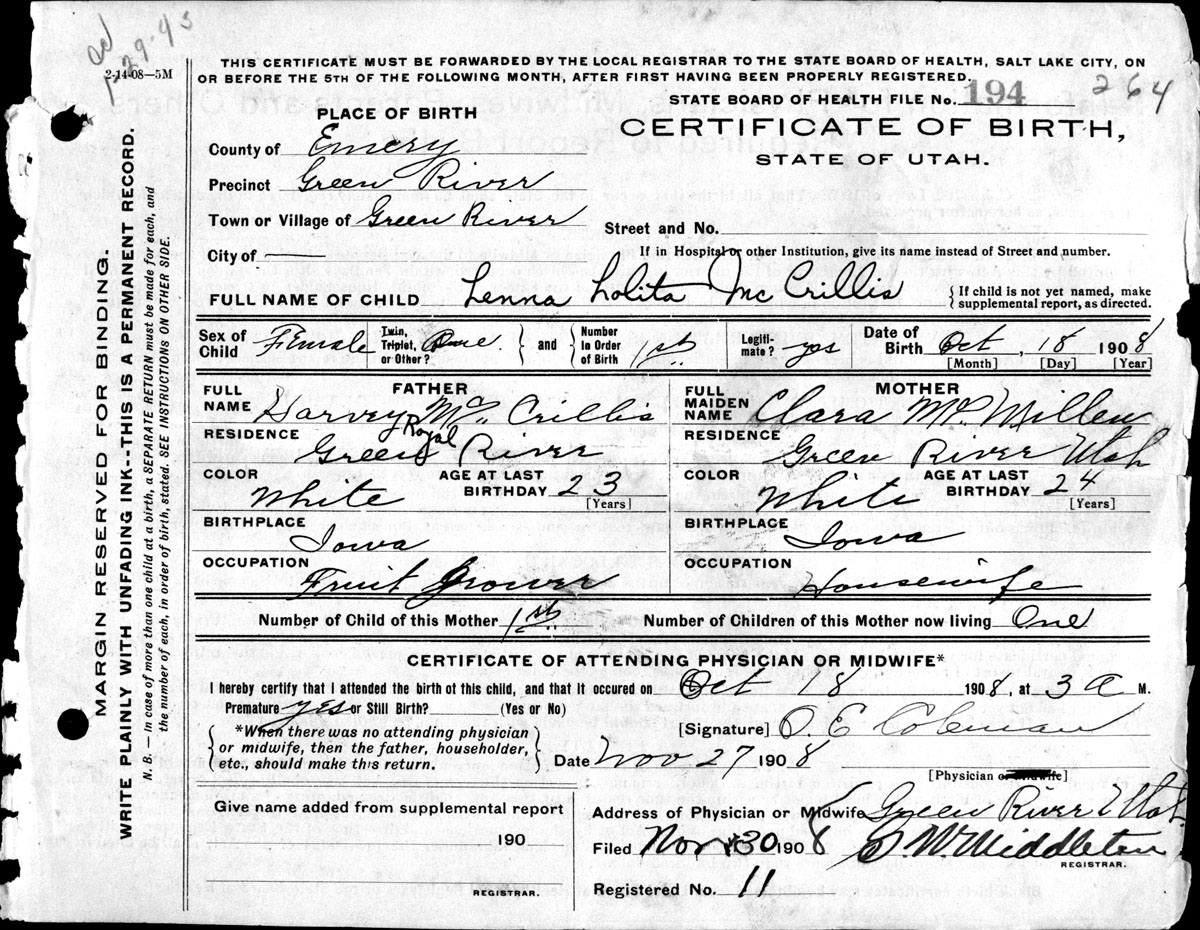 29-43
2-14-08—5M
THIS CERTIFICATE MUST BE FORWARDED BY THE LOCAL REGISTRAR TO THE STATE BOARD OF HEALTH, SALT LAKE CITY, ON
OR BEFORE THE 5TH OF THE FOLLOWING MONTH, AFTER FIRST HAVING BEEN PROPERLY REGISTERED.
STATE BOARD OF HEALTH FILE No. 194 264
CERTIFICATE OF BIRTH,
STATE OF UTAH.
PLACE OF BIRTH
County of Emery
Precinct Green River
Town or Village of Green River
Street and No.
City of —
If in Hospital or other Institution, give its name instead of Street and number.
FULL NAME OF CHILD Lenna Lolita McCrillis
{ If child is not yet named, make
supplemental report, as directed.
Sex of Child Female
Twin, Triplet, or Other? One } and { Number in Order of Birth 1st
Legiti-mate? yes
Date of Birth Oct, 18 1908
[Month] [Day] [Year]
FATHER
FULL NAME Harvey Royal Mc Crillis
RESIDENCE Green River
COLOR White
AGE AT LAST BIRTHDAY 23 [Years]
BIRTHPLACE Iowa
OCCUPATION Fruit Grower
MOTHER
FULL MAIDEN NAME Clara McMillen
RESIDENCE Green River Utah
COLOR White
AGE AT LAST BIRTHDAY 24 [Years]
BIRTHPLACE Iowa
OCCUPATION Housewife
Number of Child of this Mother 1st
Number of Children of this Mother now living One
CERTIFICATE OF ATTENDING PHYSICIAN OR MIDWIFE*
I hereby certify that I attended the birth of this child, and that it occured on Oct 18 1908, at 3 a M.
Premature yes or Still Birth? (Yes or No)
{ *When there was no attending physician
or midwife, then the father, householder,
etc., should make this return. }
[Signature] O. E. Coleman
Date Nov 27 1908
[Physician or Midwife]
Give name added from supplemental report
190
REGISTRAR.
Address of Physician or Midwife Green River Utah.
Filed Nov 30 1908 S. W. Middleton
REGISTRAR.
Registered No. 11
MARGIN RESERVED FOR BINDING.
WRITE PLAINLY WITH UNFADING INK--THIS IS A PERMANENT RECORD.
N. B. — In case of more than one child at a birth, a SEPARATE RETURN must be made for each, and
the number of each, in order of birth, stated. SEE INSTRUCTIONS ON OTHER SIDE.